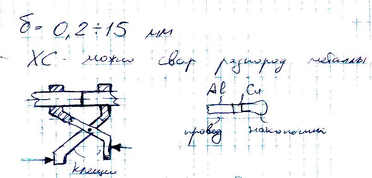 δ = 0,2÷15 мм
ХС - можно свар разнород металлы
Al Cu
провод наконечник
клещи